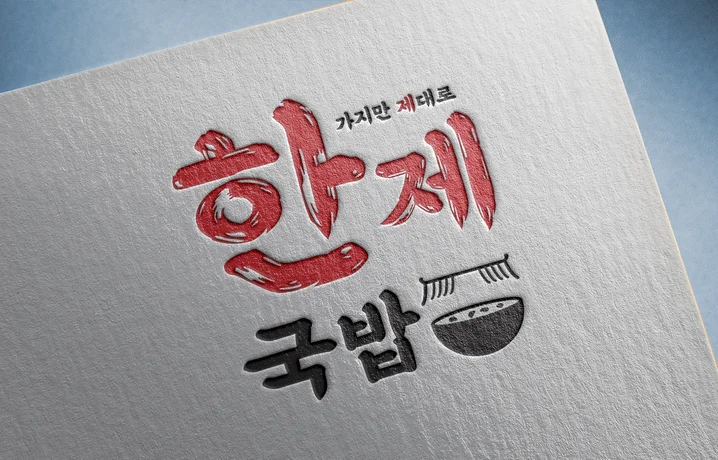 한 가지만 제대로
제
국밥